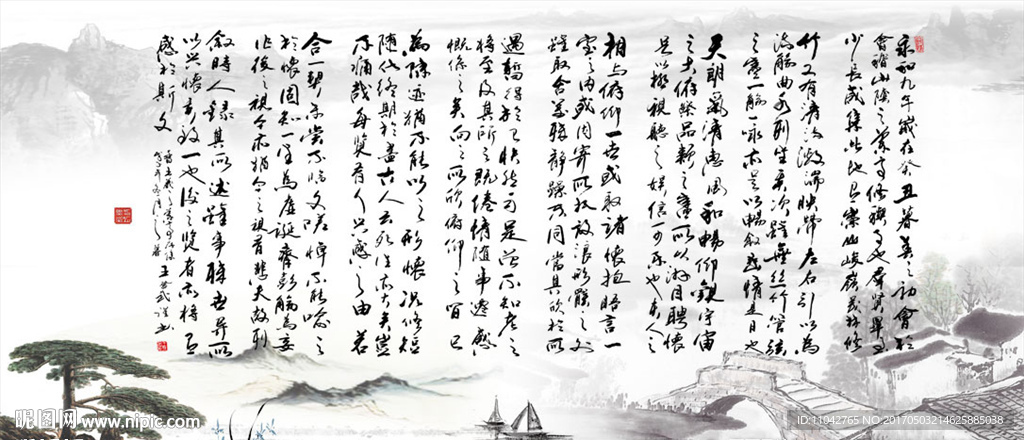 永和九年歲在癸丑暮春之初會於
會稽山陰之蘭亭修禊事也群賢畢至
少長咸集此地有崇山峻嶺茂林修
竹又有清流激湍映帶左右引以為
流觴曲水列坐其次雖無絲竹管弦
之盛一觴一詠亦足以暢敘幽情是日也
天朗氣清惠風和暢仰觀宇宙
之大俯察品類之盛所以游目騁懷
足以極視聽之娛信可樂也夫人之
相與俯仰一世或取諸懷抱晤言一
室之內或因寄所託放浪形骸之外
雖取舍萬殊靜躁不同當其欣於所
遇暫得於己快然自足不知老之
將至及其所之既倦情隨事遷感
慨係之矣向之所欣俯仰之間已
為陳迹猶不能以之興懷況修短
隨化終期於盡古人云死生亦大矣豈
不痛哉每覽昔人興感之由若
合一契未嘗不臨文嗟悼不能喻之
於懷固知一死生為虛誕齊彭殤為妄
作後之視今亦猶今之視昔悲夫故列
敘時人錄其所述雖事殊世異所
以興懷其致一也後之覽者亦將有
感於斯文
昵图网 www.nipic.com
ID:11042765 NO:20170503214625885038